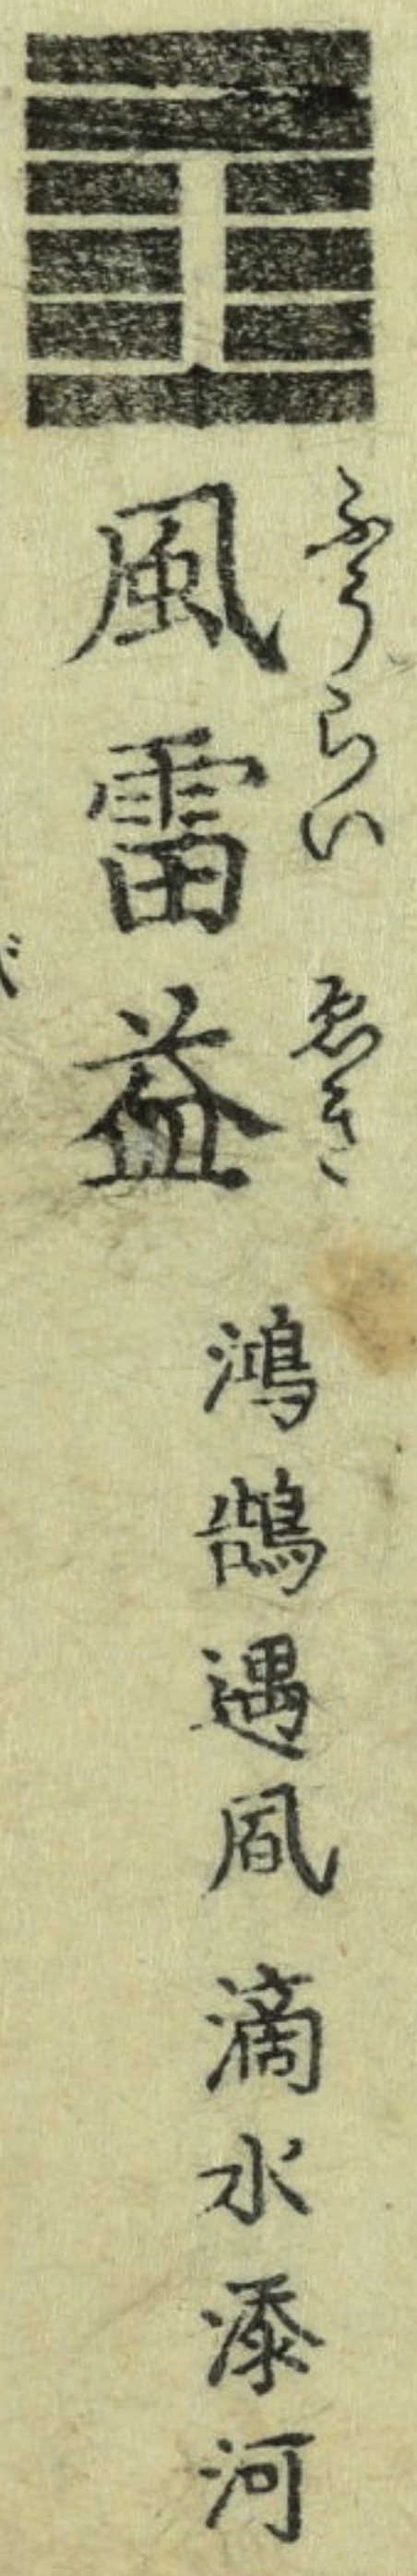 ふうらい ゑき
風雷益
鴻鵠遇風 滴水添河